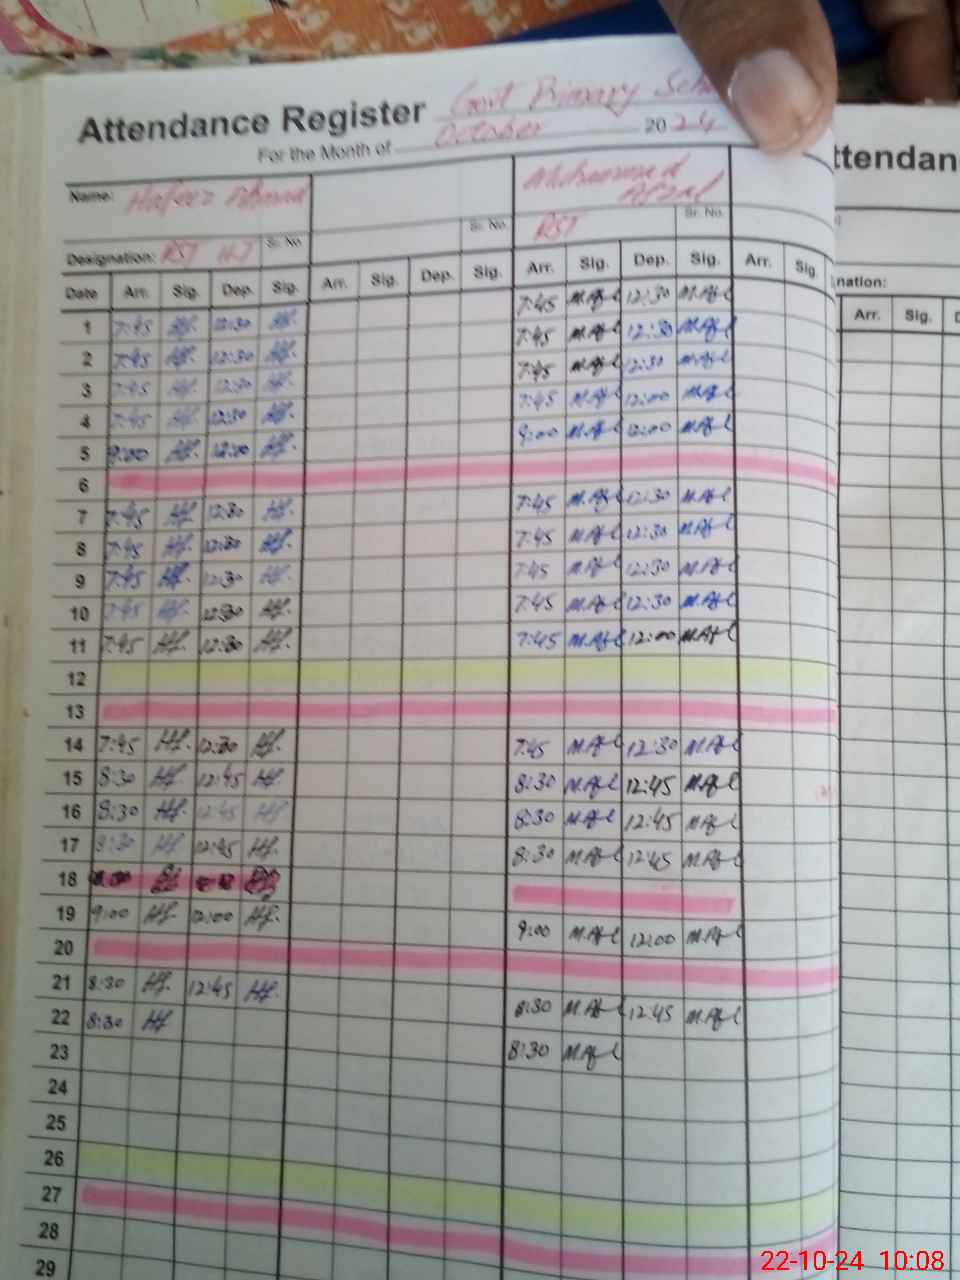 Attendance Register Govt Primary Sch
For the Month of October 2024
Name: Hafeez Ahmad Muhammad Afzal
Sr. No. Sr. No. Sr. No.
Designation: RST H.T RST
Date Arr. Sig. Dep. Sig. Arr. Sig. Dep. Sig. Arr. Sig. Dep. Sig. Arr. Sig.
1 7:45 Hf. 12:30 Hf. 7:45 M.Afl 12:30 M.Afl
2 7:45 Hf. 12:30 Hf. 7:45 M.Afl 12:30 M.Afl
3 7:45 Hf. 12:30 Hf. 7:45 M.Afl 12:30 M.Afl
4 7:45 Hf. 12:30 Hf. 7:45 M.Afl 12:00 M.Afl
5 9:00 Hf. 12:00 Hf. 9:00 M.Afl 12:00 M.Afl
6
7 7:45 Hf. 12:30 Hf. 7:45 M.Afl 12:30 M.Afl
8 7:45 Hf. 12:30 Hf. 7:45 M.Afl 12:30 M.Afl
9 7:45 Hf. 12:30 Hf. 7:45 M.Afl 12:30 M.Afl
10 7:45 Hf. 12:30 Hf. 7:45 M.Afl 12:30 M.Afl
11 7:45 Hf. 12:30 Hf. 7:45 M.Afl 12:00 M.Afl
12
13
14 7:45 Hf. 12:30 Hf. 7:45 M.Afl 12:30 M.Afl
15 8:30 Hf. 12:45 Hf. 8:30 M.Afl 12:45 M.Afl
16 8:30 Hf. 12:45 Hf. 8:30 M.Afl 12:45 M.Afl
17 8:30 Hf. 12:45 Hf. 8:30 M.Afl 12:45 M.Afl
18
19 9:00 Hf. 12:00 Hf. 9:00 M.Afl 12:00 M.Afl
20
21 8:30 Hf. 12:45 Hf. 8:30 M.Afl 12:45 M.Afl
22 8:30 Hf 8:30 M.Afl
23
24
25
26
27
28
29
ttendan
nation:
Arr. Sig.
22-10-24 10:08